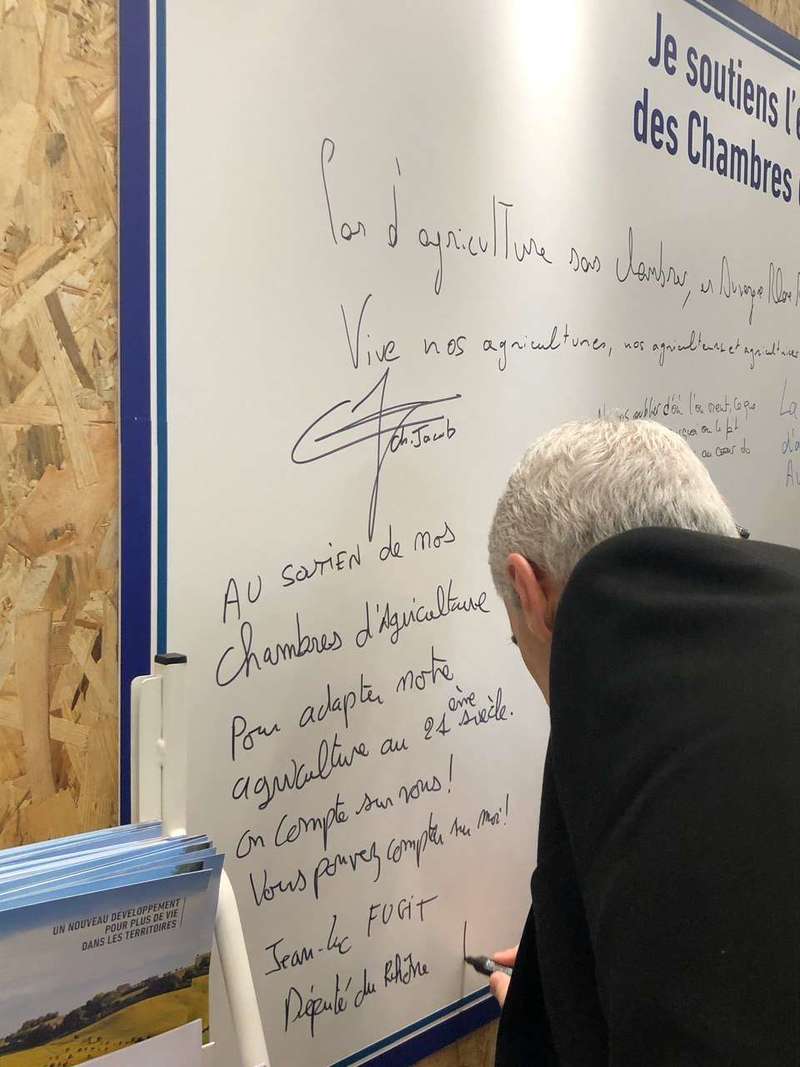 Je soutiens l'
des Chambres
Pas d'agriculture sans chambres, en Auvergne Rhône
Vive nos agricultures, nos agriculteurs et agricultrices
Ch. Jacob
oublier d'où l'on vient, ce que
au cœur du
La
AU SOUTIEN de nos
Chambres d'Agriculture
Pour adapter notre
agriculture au 21ème siècle.
On compte sur vous !
Vous pouvez compter sur moi !
Jean-Luc FUGIT
Député du Rhône
UN NOUVEAU DEVELOPPEMENT
POUR PLUS DE VIE
DANS LES TERRITOIRES